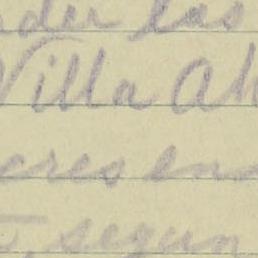 der las
Villa Ah
cres en
segun